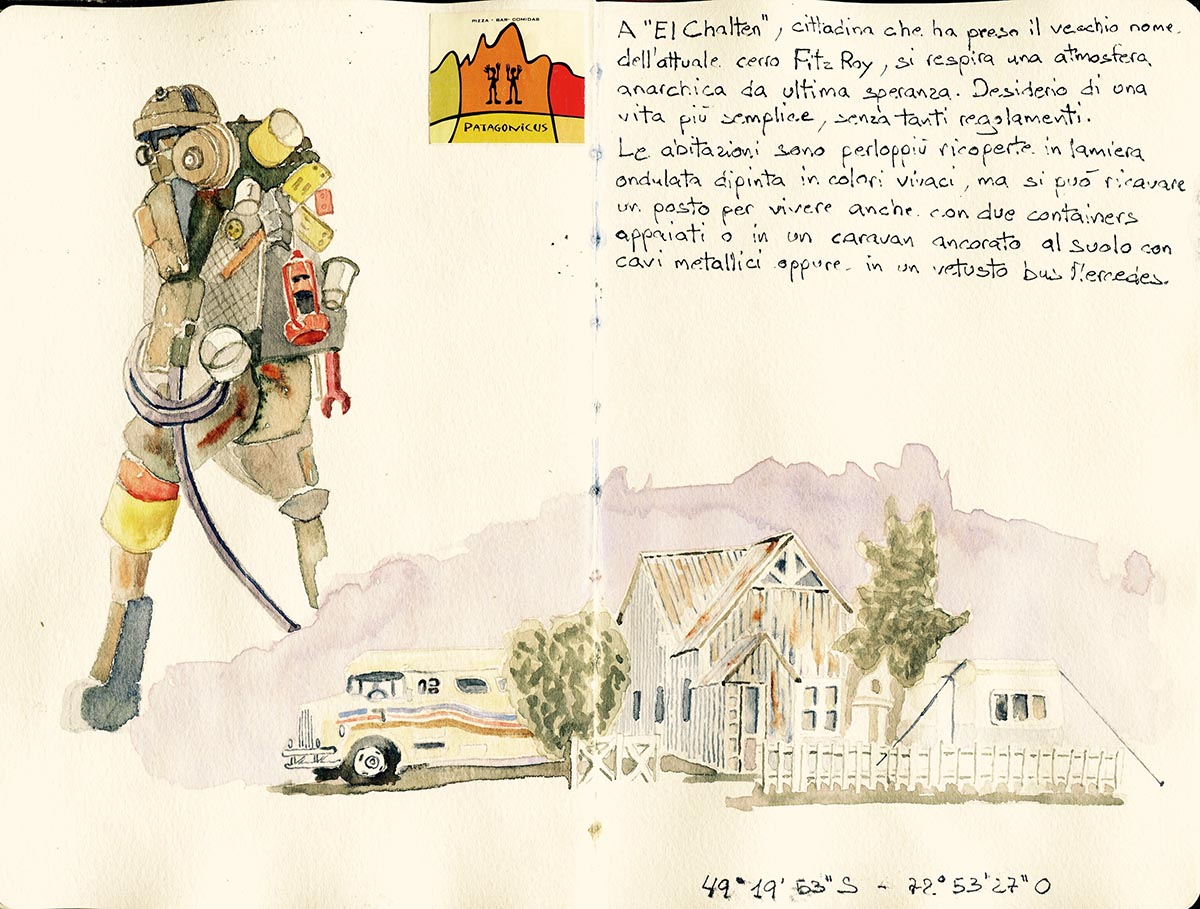 PIZZA - BAR - COMIDAS
PATAGONICUS
A "El Chalten", cittadina che ha preso il vecchio nome
dell'attuale cerro Fitz Roy, si respira una atmosfera
anarchica da ultima speranza. Desiderio di una
vita più semplice, senza tanti regolamenti.
Le abitazioni sono perloppiù ricoperte in lamiera
ondulata dipinta in colori vivaci, ma si può ricavare
un posto per vivere anche con due containers
appaiati o in un caravan ancorato al suolo con
cavi metallici oppure in un vetusto bus Mercedes.
49° 19' 53" S - 72° 53' 27" O